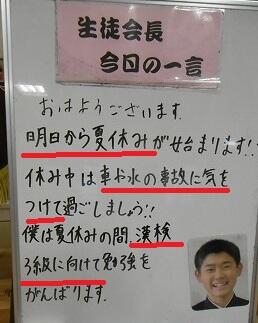 生徒会長
今日の一言
おはようございます.
明日から夏休みが始まります!!
休み中は車や水の事故に気を
つけて過ごしましょう!!
僕は夏休みの間,漢検
3級に向けて勉強を
がんばります.